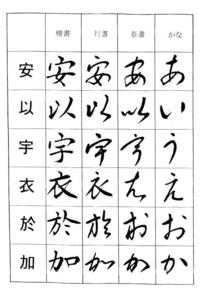 楷書 行書 草書 かな
安 安 安 あ あ
以 以 以 以 い
宇 宇 宇 宇 う
衣 衣 衣 え え
於 於 於 お お
加 加 加 か か